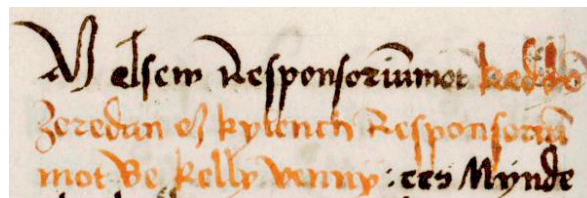 Az elsew Responsoriūmot keddē
Zoredan es kylench Responsoriū
mot Be kelly venny : ees Mÿnde